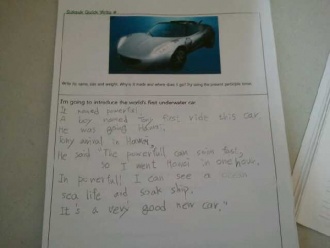 Episode Quick Write 4
Write its name, size and weight. Why is it made and where does it go? Try using the present participle tense.
I'm going to introduce the world's first underwater car
It named powerfall.
A boy named Tony first ride this car.
He was going Hawaii.
Tony arrival in Hawaii,
He said "The powerfall can swim fast,
so I went Hawaii in one hour.
In powerfall I can see a ocean
sea life and sunk ship.
It's a very good new car."